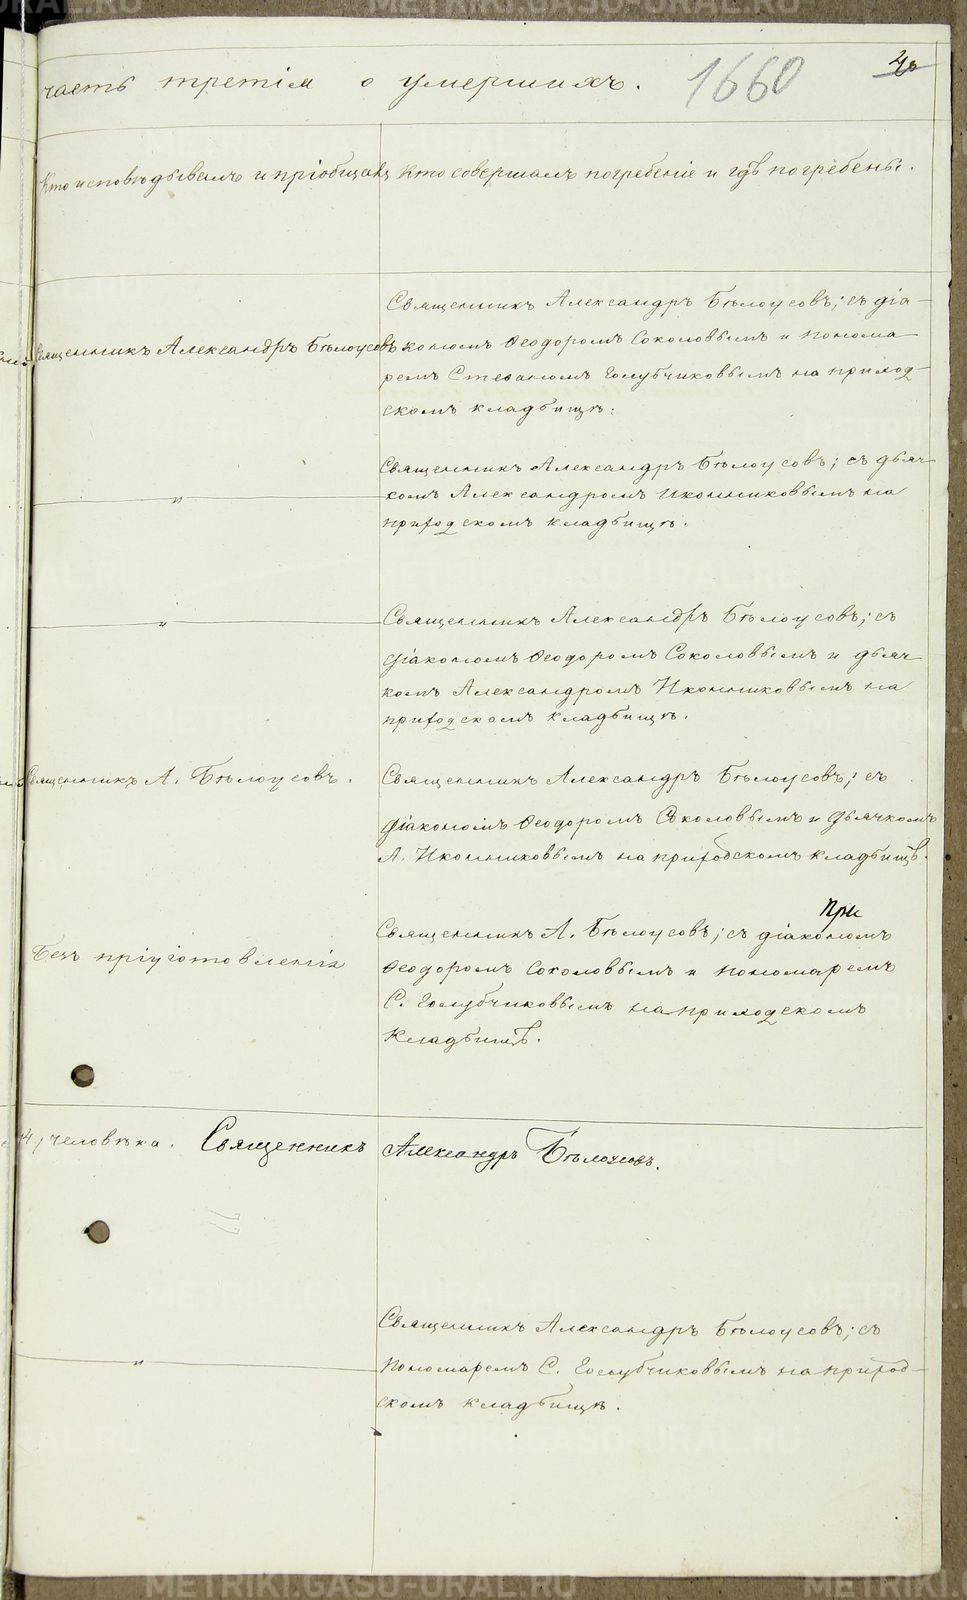 часть третія о умершихъ. 1660
Кто исповѣдывалъ и пріобщалъ
Кто совершалъ погребеніе и гдѣ погребены.
Священникъ Александръ Бѣлоусовъ
Священникъ Александръ Бѣлоусовъ; съ діа-
кономъ Ѳеодоромъ Соколовымъ и понома-
ремъ Стефаномъ Голубчиковымъ на приход-
скомъ кладбищѣ.
— „ —
Священникъ Александръ Бѣлоусовъ; съ дьяч-
комъ Александромъ Иконниковымъ на
приходскомъ кладбищѣ.
— „ —
Священникъ Александръ Бѣлоусовъ; съ
діакономъ Ѳеодоромъ Соколовымъ и дьяч-
комъ Александромъ Иконниковымъ на
приходскомъ кладбищѣ.
Священникъ А. Бѣлоусовъ.
Священникъ Александръ Бѣлоусовъ; съ
діакономъ Ѳеодоромъ Соколовымъ и дьячкомъ
А. Иконниковымъ на приходскомъ кладбищѣ.
Безъ пріуготовленія
при
Священникъ А. Бѣлоусовъ; съ діакономъ
Ѳеодоромъ Соколовымъ и пономаремъ
С. Голубчиковымъ на приходскомъ
кладбищѣ.
4, человѣка. Священникъ Александръ Бѣлоусовъ.
— „ —
Священникъ Александръ Бѣлоусовъ; съ
пономаремъ С. Голубчиковымъ на приход-
скомъ кладбищѣ.
METRIKI.GASO-URAL.RU